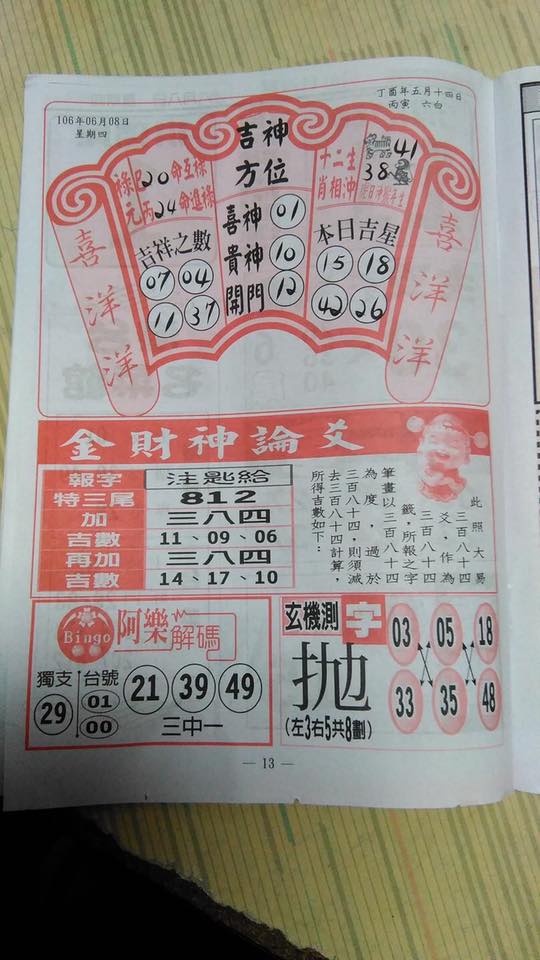 106年06月08日
星期四
丁酉年五月十四日
丙寅 六白
吉神
方位
喜神 01
貴神 10
開門 12
祿 20 命互祿
元 丙 24 命進祿
吉祥之數
07 04
11 37
十二生
肖相沖
41
38
本日吉星
15 18
42 26
喜洋洋
喜洋洋
金財神論爻
報字 注匙給
特三尾 812
加 三八四
吉數 11、09、06
再加 三八四
吉數 14、17、10
此照大易
三百八十四
爻,作為
三百八十四
籤,所報之字
筆畫以三百八十四
為度,過於
三百八十四,則須減
去三百八十四計算,
所得吉數如下:
Bingo 阿樂解碼
獨支 29
台號 01 00
21 39 49
三中一
玄機測字
拋
(左3右5共8劃)
03 05 18
33 35 48
— 13 —